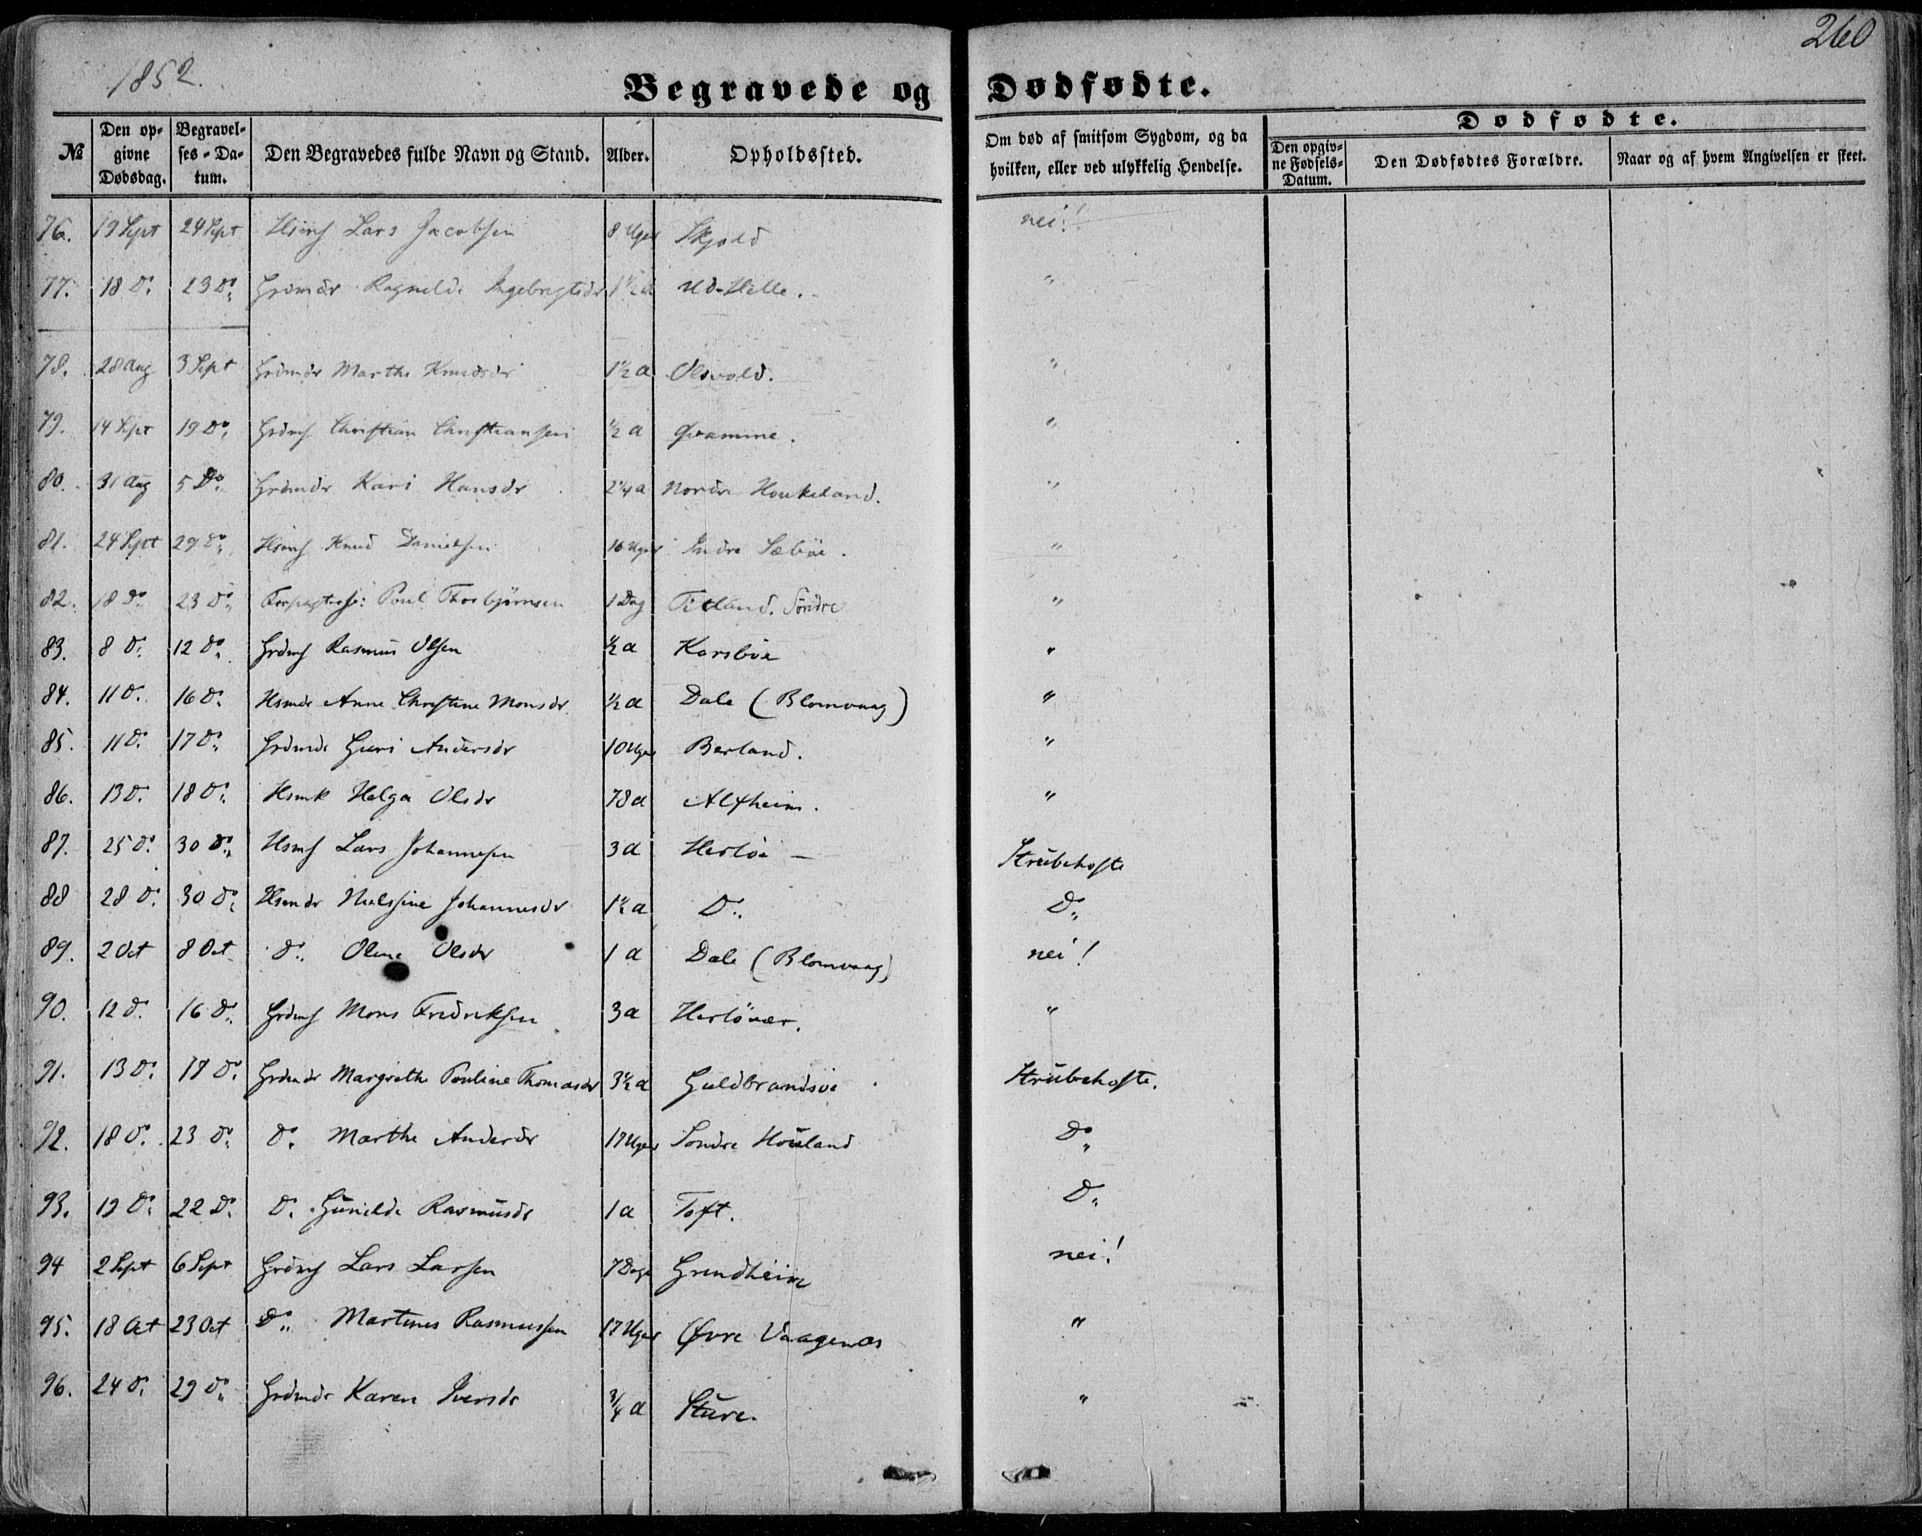 260
1852.
Begravede og Dødfødte.
№ Den opgivne Dødsdag. Begravelses-Datum. Den Begravedes fulde Navn og Stand. Alder. Opholdssted. Om død af smitsom Sygdom, og da hvilken, eller ved ulykkelig Hendelse. Dødfødte.
Den opgivne Fødsels-Datum. Den Dødfødtes Forældre. Naar og af hvem Angivelsen er skeet.
76. 19 Sept 24 Sept Hsms Lars Jacobsen 8 Uger Skjold nei!
77. 18 Do. 23 Do. Grdmdr Ragnilde Ingebrigtsdr 1½ a Ud-Helle. "
78. 28 Aug 3 Sept Grdmdr Marthe Knudsdr 1½ a Olsvold. "
79. 14 Sept 19 Do. Grdms Christian Christiansen ½ a Qvamme. "
80. 31 Aug 5 Do. Grdmdr Kari Hansdr 2¼ a Nordre Houkeland. "
81. 24 Sept 29 Do. Hsms Knud Danielsen 16 Uger Indre Sæbøe. "
82. 18 Do. 23 Do. Poul Thorbjørnsen 1 Dag Titland. Söndre "
83. 8 Do. 12 Do. Grdms Rasmus Olsen ½ a Karsböe "
84. 11 Do. 16 Do. Hsmdr Anne Christine Monsdr. ½ a Dale (Blomvaag) "
85. 11 Do. 17 Do. Grdmdr Guri Andersdr 10 Uger Berland. "
86. 13 Do. 18 Do. Hsmk Helga Olsdr 78 a Alfheim. "
87. 25 Do. 30 Do. Hsms Lars Johannesen 3 a Herløe – Strubehoste
88 28 Do. 30 Do. Hsmdr Nielsine Johannesdr 1½ a Do. Do.
89. 2 Oct 8 Oct Do. Oline Olsdr 1 a Dale (Blomvaag) nei!
90. 12 Do. 16 Do. Grdms Mons Fredriksen 3 a Herlövær. "
91. 13 Do. 17 Do. Grdmdr Margrethe Pouline Thomasdr 3½ a Guldbrandsöe Strubehoste.
92. 18 Do. 23 Do. Do. Marthe Andersdr 17 Uger Söndre Houland Do.
93. 19 Do. 22 Do. Do. Gunilde Rasmusdr 1 a Toft. Do.
94 2 Sept 6 Sept Grdms Lars Larsen 7 Dage Grendheim nei!
95. 18 Oct 23 Oct Do. Martinus Rasmussen 17 Uger Øvre Vaagenæs "
96. 24 Do. 29 Do. Grdmdr Karen Iversdr ¾ a Sture. "